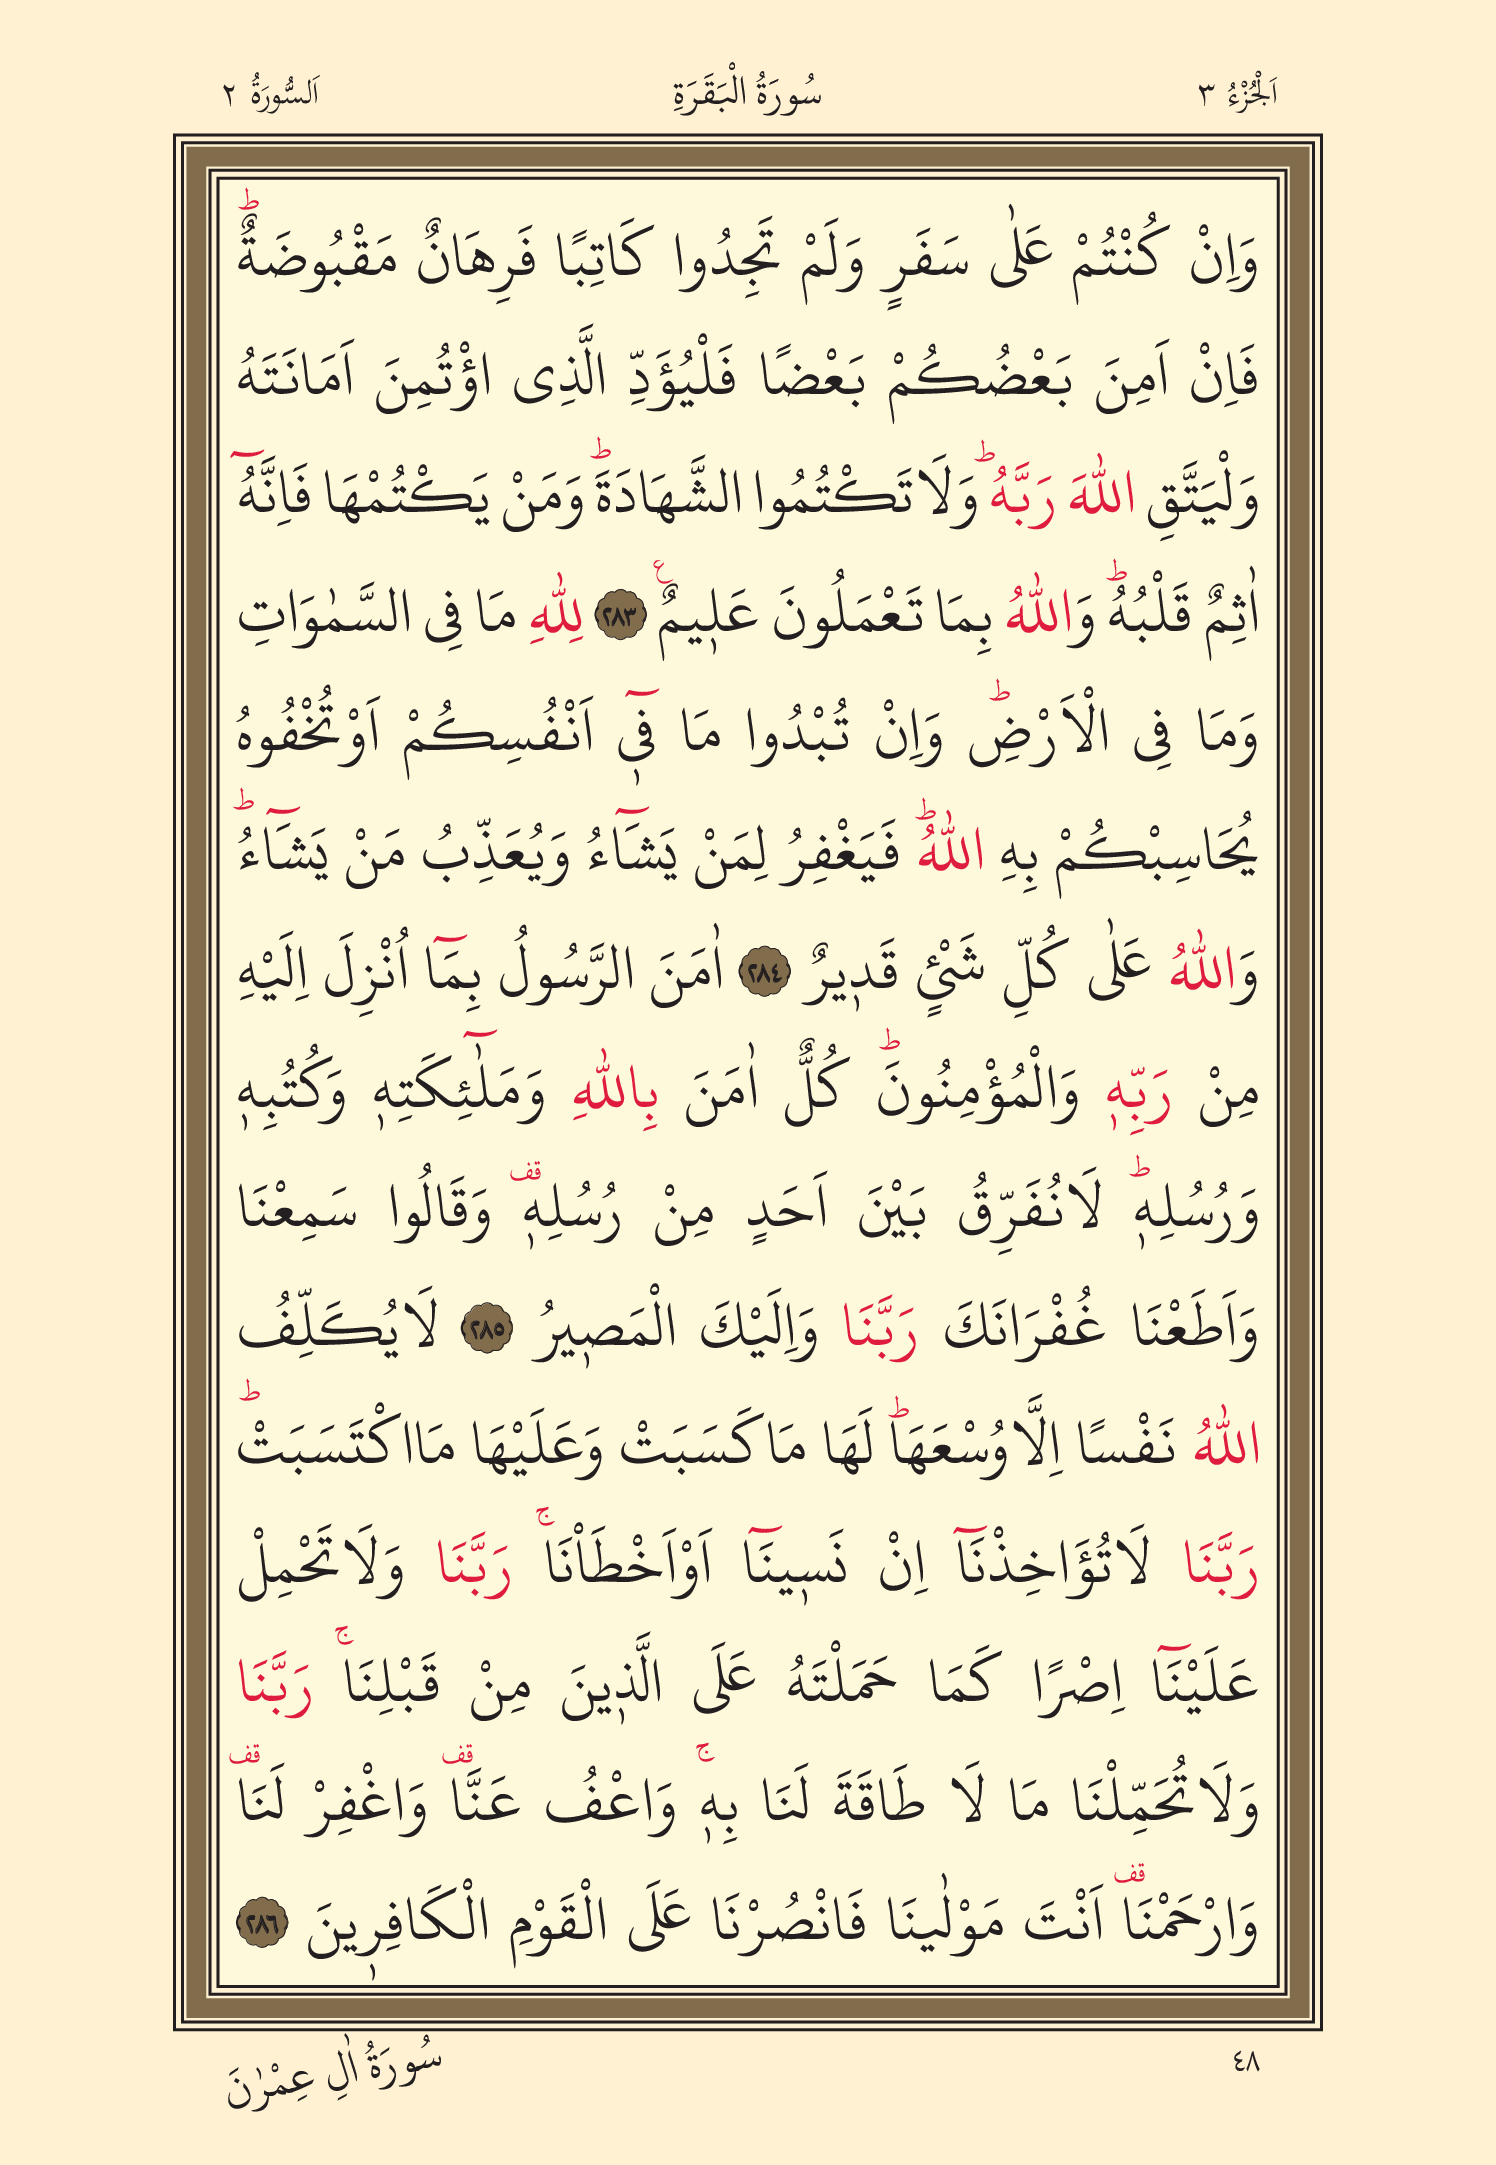 اَلْجُزْءُ ٣ سُورَةُ الْبَقَرَةِ اَلسُّورَةُ ٢
وَاِنْ كُنْتُمْ عَلٰى سَفَرٍ وَلَمْ تَجِدُوا كَاتِبًا فَرِهَانٌ مَقْبُوضَةٌ ط
فَاِنْ اَمِنَ بَعْضُكُمْ بَعْضًا فَلْيُؤَدِّ الَّذِى اؤْتُمِنَ اَمَانَتَهُ
وَلْيَتَّقِ اللّٰهَ رَبَّهُ ط وَلَا تَكْتُمُوا الشَّهَادَةَ ط وَمَنْ يَكْتُمْهَا فَاِنَّهُٓ
اٰثِمٌ قَلْبُهُ ط وَاللّٰهُ بِمَا تَعْمَلُونَ عَلٖيمٌ ع ﴿٢٨٣﴾ لِلّٰهِ مَا فِى السَّمٰوَاتِ
وَمَا فِى الْاَرْضِ ط وَاِنْ تُبْدُوا مَا فٖٓى اَنْفُسِكُمْ اَوْ تُخْفُوهُ
يُحَاسِبْكُمْ بِهِ اللّٰهُ ط فَيَغْفِرُ لِمَنْ يَشَٓاءُ وَيُعَذِّبُ مَنْ يَشَٓاءُ ط
وَاللّٰهُ عَلٰى كُلِّ شَیْءٍ قَدٖيرٌ ﴿٢٨٤﴾ اٰمَنَ الرَّسُولُ بِمَٓا اُنْزِلَ اِلَيْهِ
مِنْ رَبِّهٖ وَالْمُؤْمِنُونَ ط كُلٌّ اٰمَنَ بِاللّٰهِ وَمَلٰٓئِكَتِهٖ وَكُتُبِهٖ
وَرُسُلِهٖ ط لَا نُفَرِّقُ بَيْنَ اَحَدٍ مِنْ رُسُلِهٖ قف وَقَالُوا سَمِعْنَا
وَاَطَعْنَا غُفْرَانَكَ رَبَّنَا وَاِلَيْكَ الْمَصٖيرُ ﴿٢٨٥﴾ لَا يُكَلِّفُ
اللّٰهُ نَفْسًا اِلَّا وُسْعَهَا ط لَهَا مَا كَسَبَتْ وَعَلَيْهَا مَا اكْتَسَبَتْ ط
رَبَّنَا لَا تُؤَاخِذْنَٓا اِنْ نَسٖينَٓا اَوْ اَخْطَاْنَا ج رَبَّنَا وَلَا تَحْمِلْ
عَلَيْنَٓا اِصْرًا كَمَا حَمَلْتَهُ عَلَى الَّذٖينَ مِنْ قَبْلِنَا ج رَبَّنَا
وَلَا تُحَمِّلْنَا مَا لَا طَاقَةَ لَنَا بِهٖ ج وَاعْفُ عَنَّا قف وَاغْفِرْ لَنَا قف
وَارْحَمْنَا قف اَنْتَ مَوْلٰينَا فَانْصُرْنَا عَلَى الْقَوْمِ الْكَافِرٖينَ ﴿٢٨٦﴾
٤٨ سُورَةُ اٰلِ عِمْرٰنَ